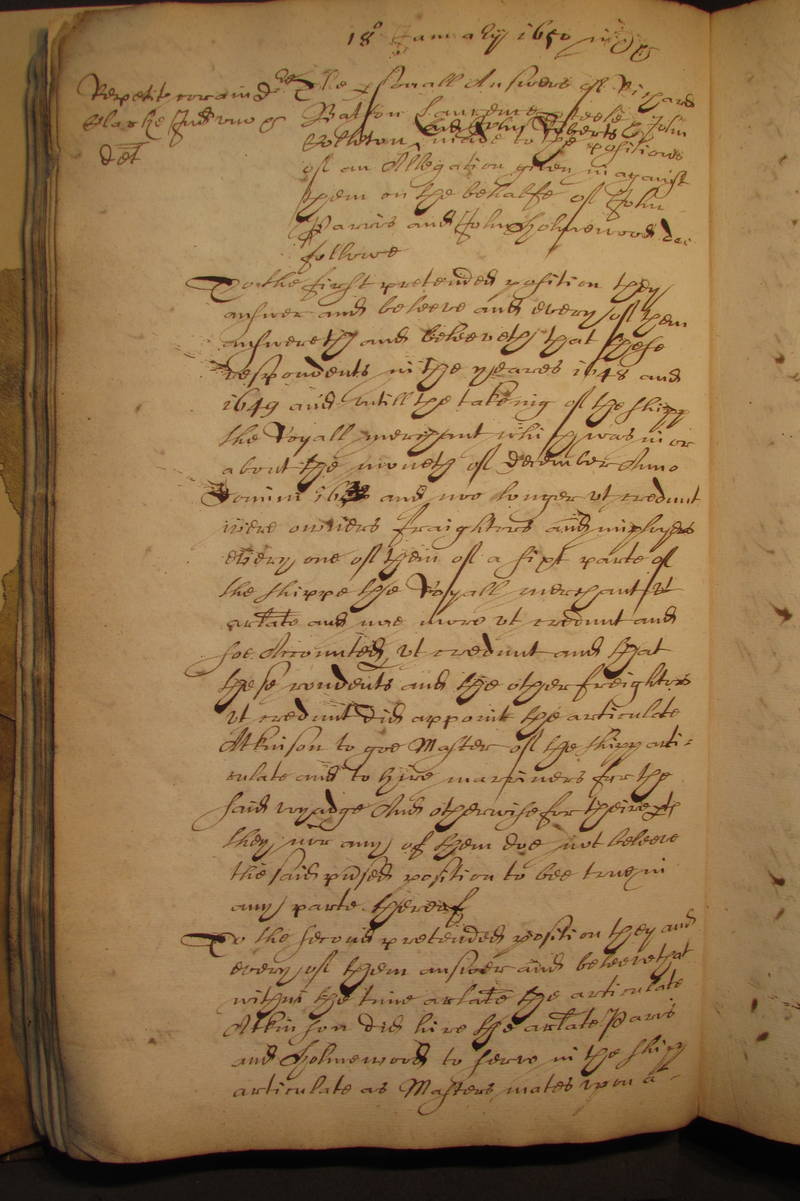 18o January 1650
Repetit coram d
Clarke Jud
det
The personall Answers of Richard
Batson Lawrence Steele John
and John Roberts
made to the positions
of an Allegation given in against
them on the behalfe of John
Parris and John Holmewood doe
followe
To the first pretended position they
answer and beleeve and every of them
answereth and beleeveth that these
respondents in the yeares 1648 and
1649 and untill the takeing of the shipp
the Royall merchant which was in or
about the moneth of December Anno
Domini and noe longer ut credunt
were owners freighters and imployers
every one of them of a sixt parte of
the shippe the Royall merchant
arlate and noe more ut credunt and
soe Accounted, ut credunt and that
these rondents and the other freighters
ut credunt did appoint the articulate
Atkinson to goe Master of the shipp arti=
culate and to hire marriners for the
said voyadge And otherwise for theire pts
they nor any of them doe not beleeve
the said ptnsed position to bee true in
any parte thereof
To the second pretended position they and
every of them answer and beleeve that
within the time arlate the articulate
Atkinson did hire the arlate Paris
and Holmewood to serve in the shipp
articulate as Masters mates upon a